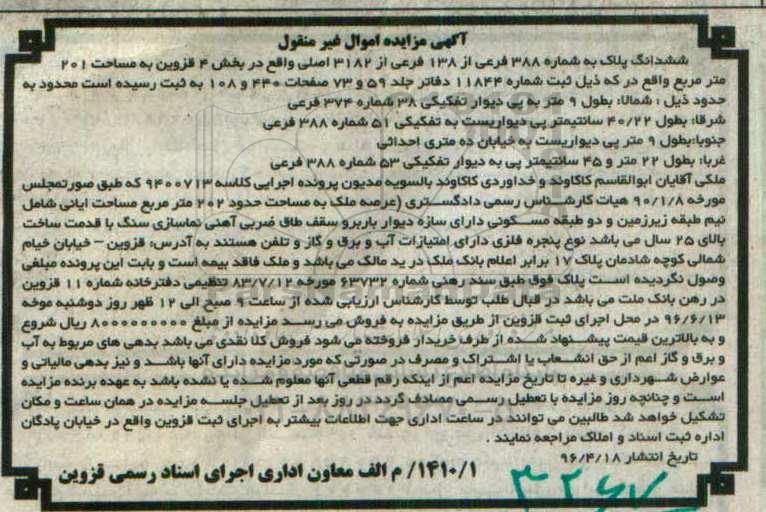 آگهی مزایده اموال غیر منقول
ششدانگ پلاک به شماره ۳۸۸ فرعی از ۱۳۸ فرعی از ۳۱۸۲ اصلی واقع در بخش ۴ قزوین به مساحت ۲۰۱
متر مربع واقع در که ذیل ثبت شماره ۱۱۸۴۴ دفاتر جلد ۵۹ و ۷۳ صفحات ۴۴۰ و ۱۰۸ به ثبت رسیده است محدود به
حدود ذیل : شمالا: بطول ۹ متر به پی دیوار تفکیکی ۳۸ شماره ۳۷۴ فرعی
شرقا: بطول ۴۰/۲۲ سانتیمتر پی دیواریست به تفکیکی ۵۱ شماره ۳۸۸ فرعی
جنوبا:بطول ۹ متر پی دیواریست به خیابان ده متری احداثی
غربا: بطول ۲۲ متر و ۴۵ سانتیمتر پی به دیوار تفکیکی ۵۳ شماره ۳۸۸ فرعی
ملکی آقایان ابوالقاسم کاکاوند و خداوردی کاکاوند بالسویه مدیون پرونده اجرایی کلاسه ۹۴۰۰۷۱۳ که طبق صورتمجلس
مورخه ۹۰/۱/۸ هیات کارشناس رسمی دادگستری (عرصه ملک به مساحت حدود ۲۰۲ متر مربع مساحت ایانی شامل
نیم طبقه زیرزمین و دو طبقه مسکونی دارای سازه دیوار باربرو سقف طاق ضربی آهنی نماسازی سنگ با قدمت ساخت
بالای ۲۵ سال می باشد نوع پنجره فلزی دارای امتیازات آب و برق و گاز و تلفن هستند به آدرس: قزوین - خیابان خیام
شمالی کوچه شادمان پلاک ۱۷ برابر اعلام بانک ملک در ید مالک می باشد و ملک فاقد بیمه است و بابت این پرونده مبلغی
وصول نگردیده است پلاک فوق طبق سند رهنی شماره ۶۳۷۳۲ مورخه ۸۳/۷/۱۲ تنظیمی دفترخانه شماره ۱۱ قزوین
در رهن بانک ملت می باشد در قبال طلب توسط کارشناس ارزیابی شده از ساعت ۹ صبح الی ۱۲ ظهر روز دوشنبه موخه
۹۶/۶/۱۳ در محل اجرای ثبت قزوین از طریق مزایده به فروش می رسد مزایده از مبلغ ۸۰۰۰۰۰۰۰۰۰ ریال شروع
و به بالاترین قیمت پیشنهاد شده از طرف خریدار فروخته می شود فروش کلا نقدی می باشد بدهی های مربوط به آب
و برق و گاز اعم از حق انشعاب یا اشتراک و مصرف در صورتی که مورد مزایده دارای آنها باشد و نیز بدهی مالیاتی و
عوارض شهرداری و غیره تا تاریخ مزایده اعم از اینکه رقم قطعی آنها معلوم شده یا نشده باشد به عهده برنده مزایده
است و چنانچه روز مزایده با تعطیل رسمی مصادف گردد در روز بعد از تعطیل جلسه مزایده در همان ساعت و مکان
تشکیل خواهد شد طالبین می توانند در ساعت اداری جهت اطلاعات بیشتر به اجرای ثبت قزوین واقع در خیابان پادگان
اداره ثبت اسناد و املاک مراجعه نمایند .
تاریخ انتشار ۹۶/۴/۱۸
۱۴۱۰/۱/ م الف معاون اداری اجرای اسناد رسمی قزوین